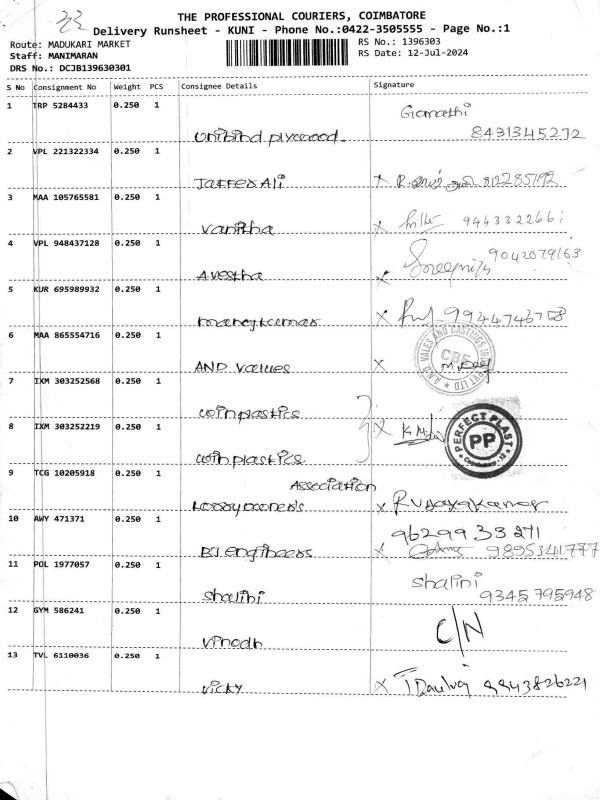 THE PROFESSIONAL COURIERS, COIMBATORE
Delivery Runsheet - KUNI - Phone No.:0422-3505555 - Page No.:1
Route: MADUKARI MARKET
RS No.: 1396303
Staff: MANIMARAN
RS Date: 12-Jul-2024
DRS No.: DCJB139630301
S No Consignment No Weight PCS Consignee Details Signature
1 TRP 5284433 0.250 1
Gomathi
unibind plywood 8431345272
2 VPL 221322334 0.250 1
Jaffer Ali
3 MAA 105765581 0.250 1
vanitha 9443322661
4 VPL 948437128 0.250 1
9042079163
Avestha
5 KUR 695989932 0.250 1
manojkumar 9944746758
6 MAA 865554716 0.250 1
AND values
7 IXM 303252568 0.250 1
coinplastics
8 IXM 303252219 0.250 1
PERFECT PLAST
PP
coinplastics
9 TCG 10205918 0.250 1
Association
Lorryowner's
10 AWY 471371 0.250 1
9629933271
BJ engineers 9895341777
11 POL 1977057 0.250 1
Shalini
shalini 9345795948
12 GYM 586241 0.250 1
C/N
vinodh
13 TVL 6110036 0.250 1
vicky 8943826221